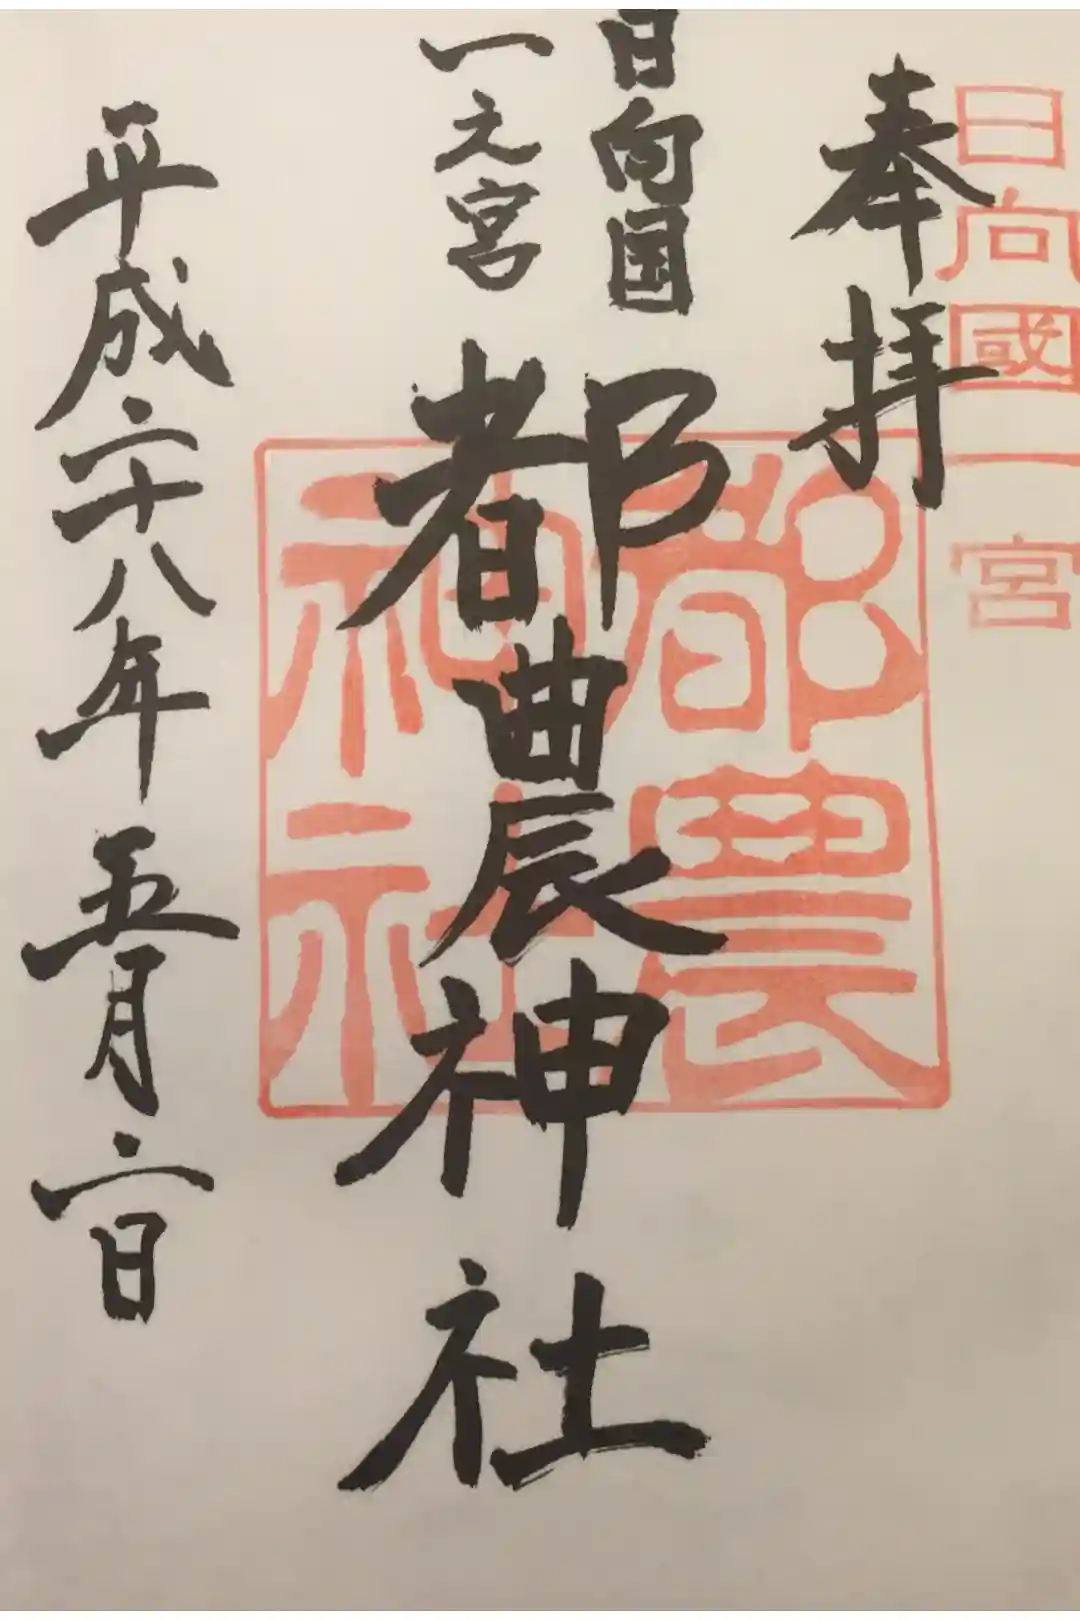 日向國一宮
奉拝
日向国
一之宮
都農神社
都農
神社
平成二十八年五月二日